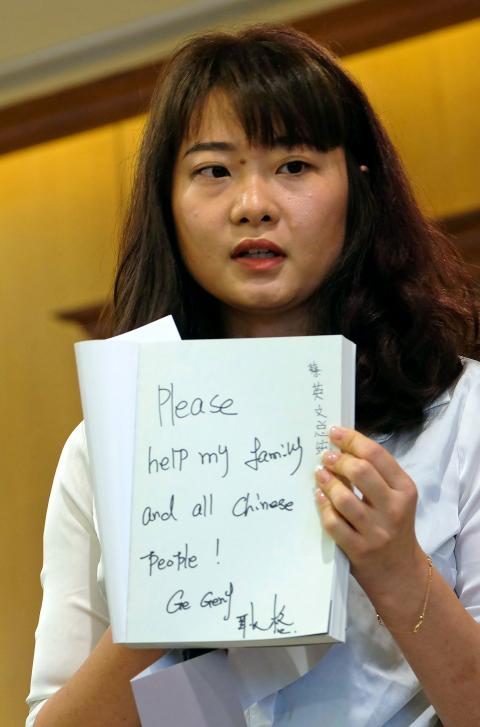 Please
help my family
and all Chinese
people !
Ge Geng
耿格.
蔡英文